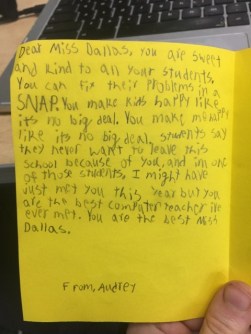 Dear Miss Dallas, you are sweet
and kind to all your students,
You can fix their problems in a
SNAP. You make kids happy like
its no big deal. You make me happy
like its no big deal, students say
they never want to leave this
school because of you, and im one
of those students, I might have
Just met you this year but you
are the best computer teacher ive
ever met. You are the best Miss
Dallas.
From, Audrey